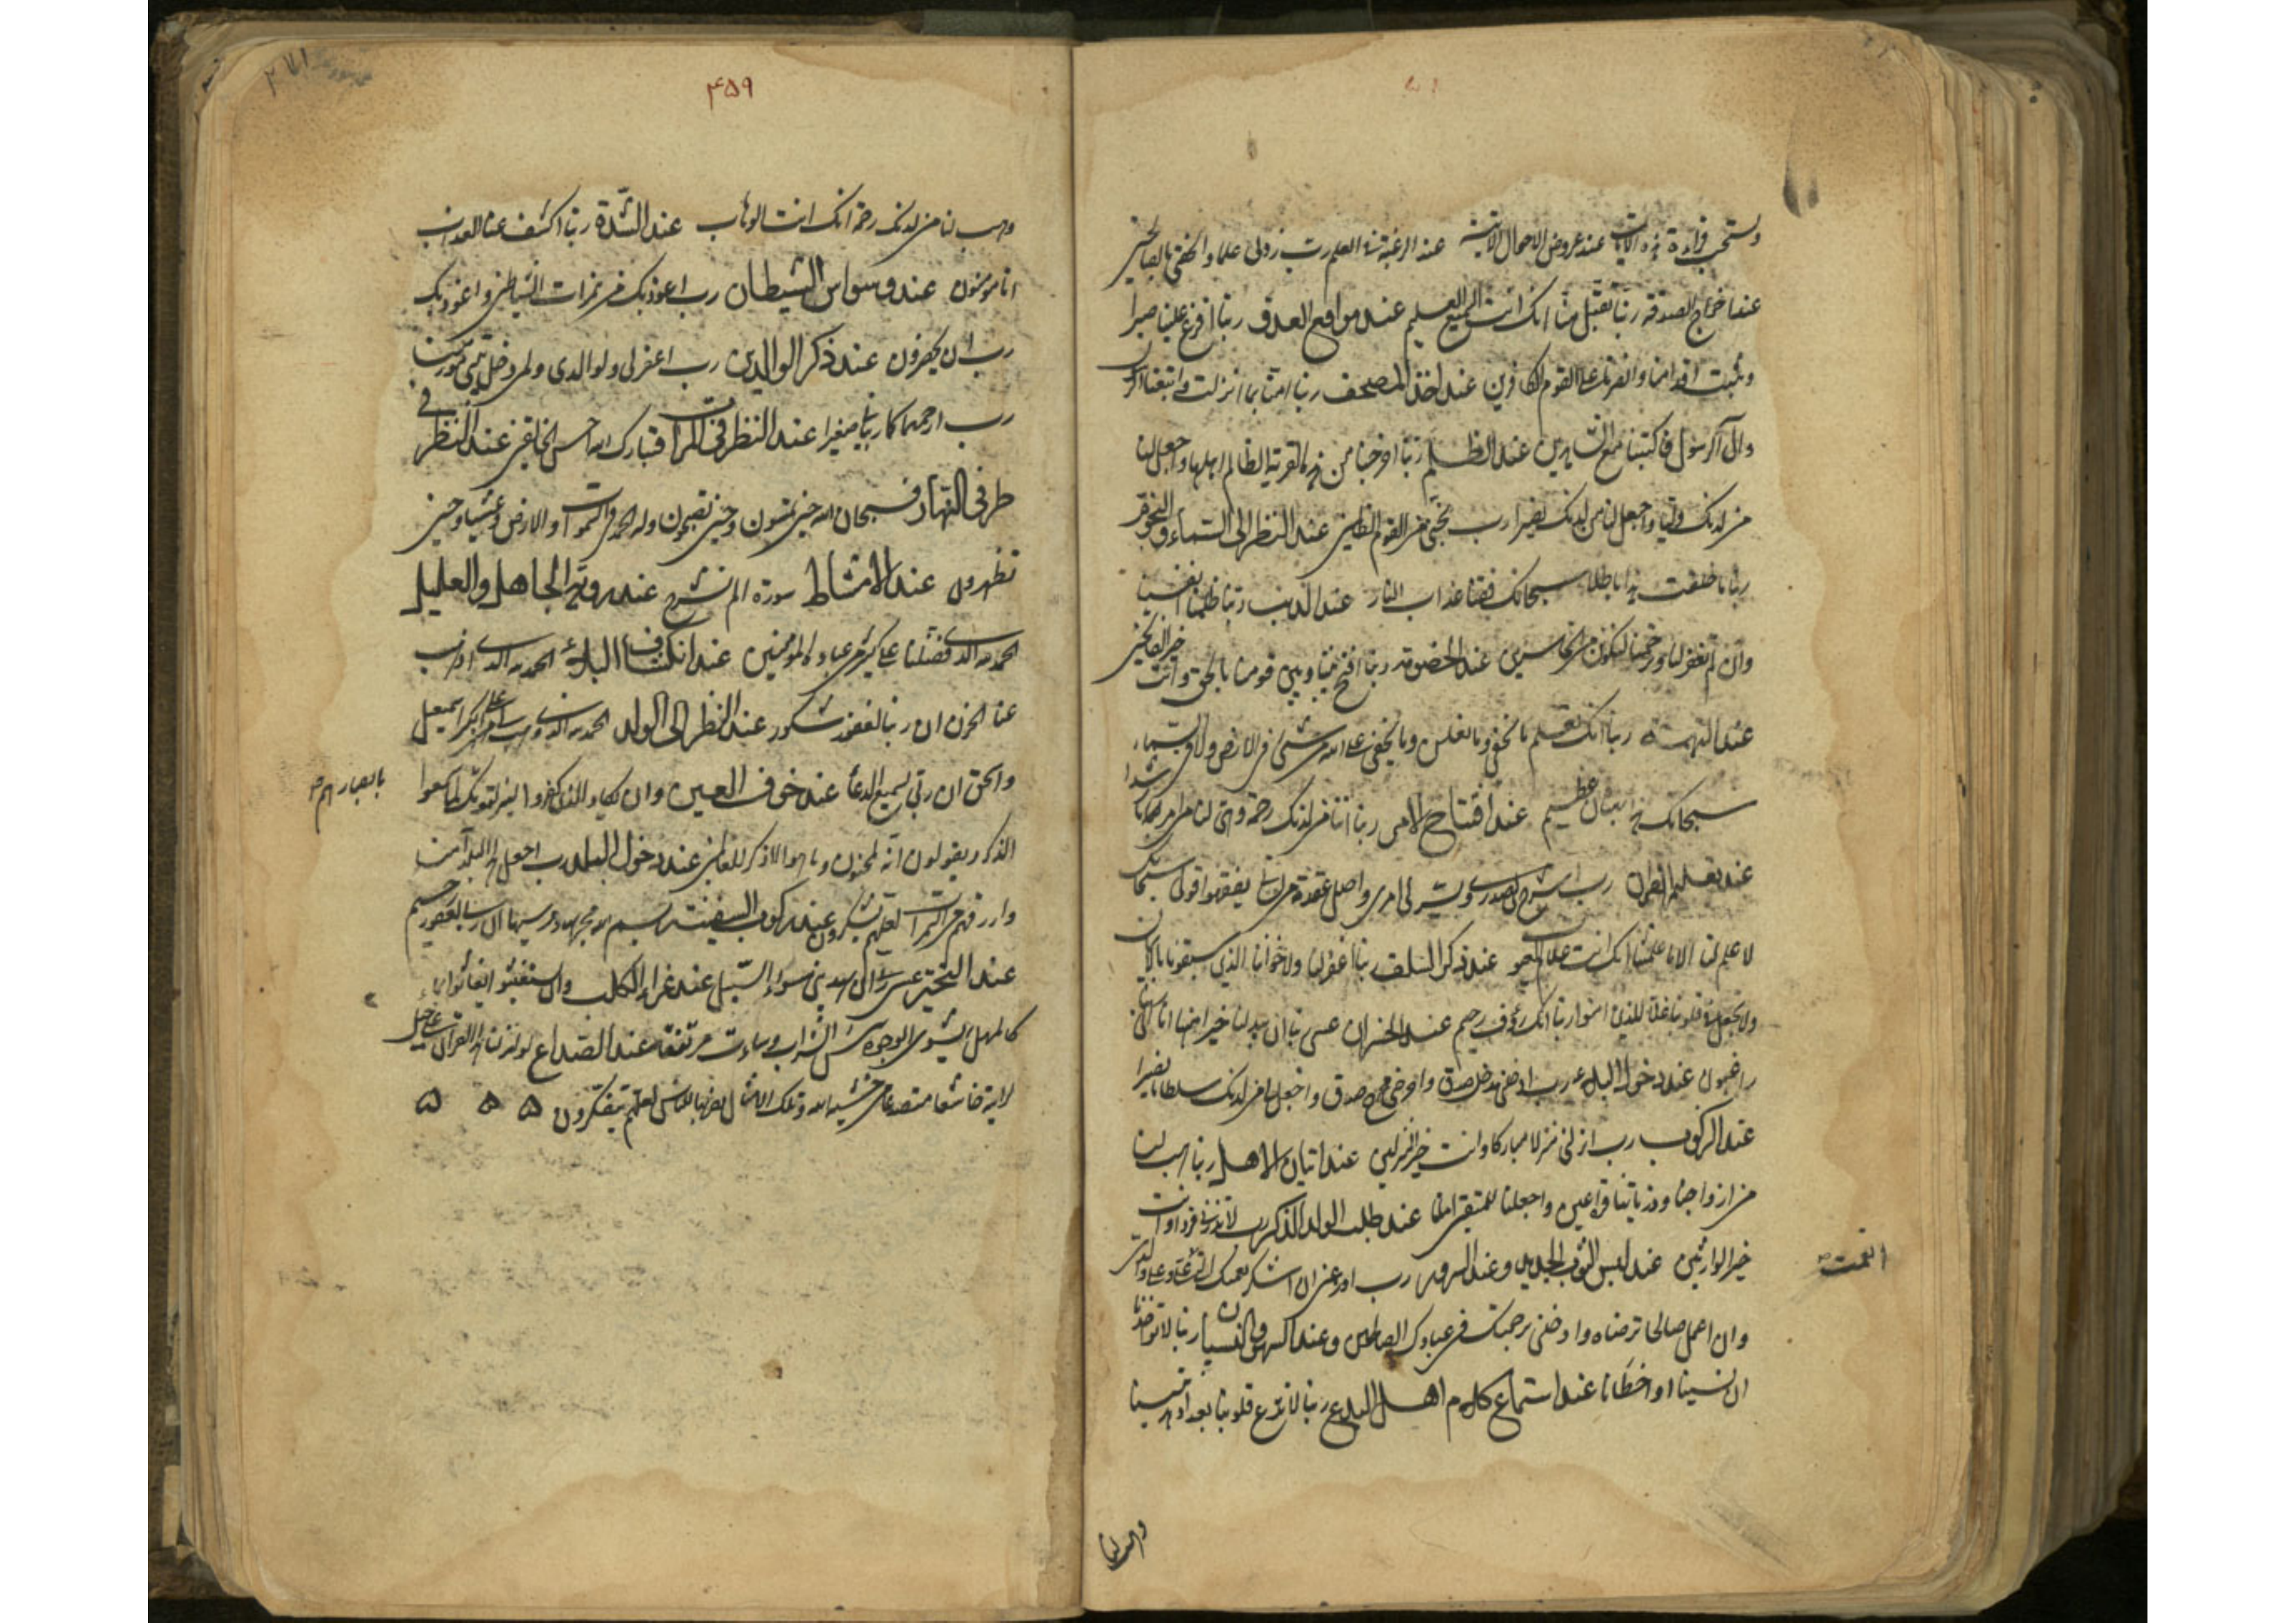 ويستحب قراءة هذه الآيات عند عروض الاحوال الآتية عند الرغبة في العلم رب زدني علما والحقني بالصالحين
عند اخراج الصدقة ربنا تقبل منا انك انت السميع العليم عند مواقع العدو ربنا افرغ علينا صبرا
وثبت اقدامنا وانصرنا على القوم الكافرين عند اخذ المصحف ربنا امنا بما انزلت واتبعنا الرسول
فاكتبنا مع الشاهدين عند الظلم ربنا اخرجنا من هذه القرية الظالم اهلها واجعل لنا
من لدنك وليا واجعل لنا من لدنك نصيرا رب نجني من القوم الظالمين عند النظر الى السماء والنجوم
ربنا ما خلقت هذا باطلا سبحانك فقنا عذاب النار عند الذنب ربنا ظلمنا انفسنا
وان لم تغفر لنا وترحمنا لنكونن من الخاسرين عند الخصومة ربنا افتح بيننا وبين قومنا بالحق وانت خير الفاتحين
عند التهمة ربنا انك تعلم ما نخفي وما نعلن وما يخفى على الله من شئ في الارض ولا في السماء
سبحانك هذا بهتان عظيم عند افتتاح الامر ربنا آتنا من لدنك رحمة وهيئ لنا من امرنا رشدا
عند تعليم القران رب اشرح لي صدري ويسر لي امري واحلل عقدة من لساني يفقهوا قولي سبحانك
لا علم لنا الا ما علمتنا انك انت علام الغيوب عند ذكر السلف ربنا اغفر لنا ولاخواننا الذين سبقونا بالايمان
ولا تجعل في قلوبنا غلا للذين امنوا ربنا انك رؤف رحيم عند الخسران عسى ربنا ان يبدلنا خيرا منها انا الى ربنا
راغبون عند دخول البلد رب ادخلني مدخل صدق واخرجني مخرج صدق واجعل لي من لدنك سلطانا نصيرا
عند الركوب رب انزلني منزلا مباركا وانت خير المنزلين عند اتيان الاهل ربنا هب لنا
من ازواجنا وذرياتنا قرة اعين واجعلنا للمتقين اماما عند طلب الولد الذكر رب لا تذرني فردا وانت
خير الوارثين عند لبس الثوب الجديد وعند السرور رب اوزعني ان اشكر نعمتك التي علي وعلى والدي
انعمت
وان اعمل صالحا ترضاه وادخلني برحمتك في عبادك الصالحين وعند السهو والنسيان ربنا لا تؤاخذنا
ان نسينا او اخطأنا عند استماع كلام اهل البدع ربنا لا تزغ قلوبنا بعد اذ هديتنا
وهب لنا
۴۵۹
۲۷۱
وهب لنا من لدنك رحمة انك انت الوهاب عند الشدة ربنا اكشف عنا العذاب
انا مؤمنون عند وسواس الشيطان رب اعوذ بك من همزات الشياطين واعوذ بك
رب ان يحضرون عند ذكر الوالدين رب اغفر لي ولوالدي ولمن دخل بيتي مؤمنا
رب ارحمهما كما ربياني صغيرا عند النظر في المرآت فتبارك الله احسن الخالقين عند النظر في
طرفي النهار فسبحان الله حين تمسون وحين تصبحون وله الحمد في السموات والارض وعشيا وحين
تظهرون عند الامتشاط سورة الم نشرح عند روية الجاهل والعليل
الحمد لله الذي فضلنا على كثير من عباده المؤمنين عند انكشاف البلاء الحمد لله الذي اذهب
عنا الحزن ان ربنا لغفور شكور عند النظر الى الولد الحمد لله الذي وهب لي على الكبر اسمعيل
واسحق ان ربي لسميع الدعا عند خوف العين وان يكاد الذين كفروا ليزلقونك لما سمعوا
بابصارهم
الذكر ويقولون انه لمجنون وما هو الا ذكر للعالمين عند دخول البلد رب اجعل هذا البلد آمنا
وارزقهم من الثمرات لعلهم يشكرون عند ركوب السفينة بسم الله مجريها ومرسيها ان ربي لغفور رحيم
عند التحير عسى ربي ان يهديني سواء السبيل عند غراء الكلب وان يستغيثوا يغاثوا بماء
كالمهل يشوي الوجوه بئس الشراب وساءت مرتفقا عند الصداع لو انزلنا هذا القرآن على جبل
لرايته خاشعا متصدعا من خشية الله وتلك الامثال نضربها للناس لعلهم يتفكرون